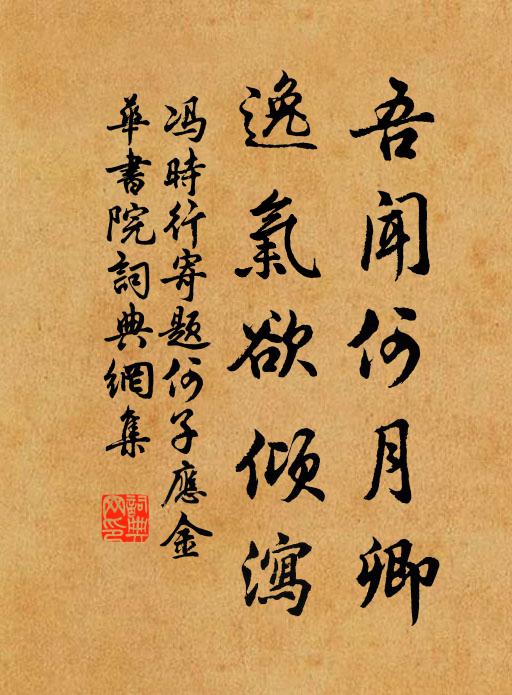 吾闻何月卿
逸氣欲倾瀉
冯時行寄题何子應金
華書院詞典網集
詞典网印